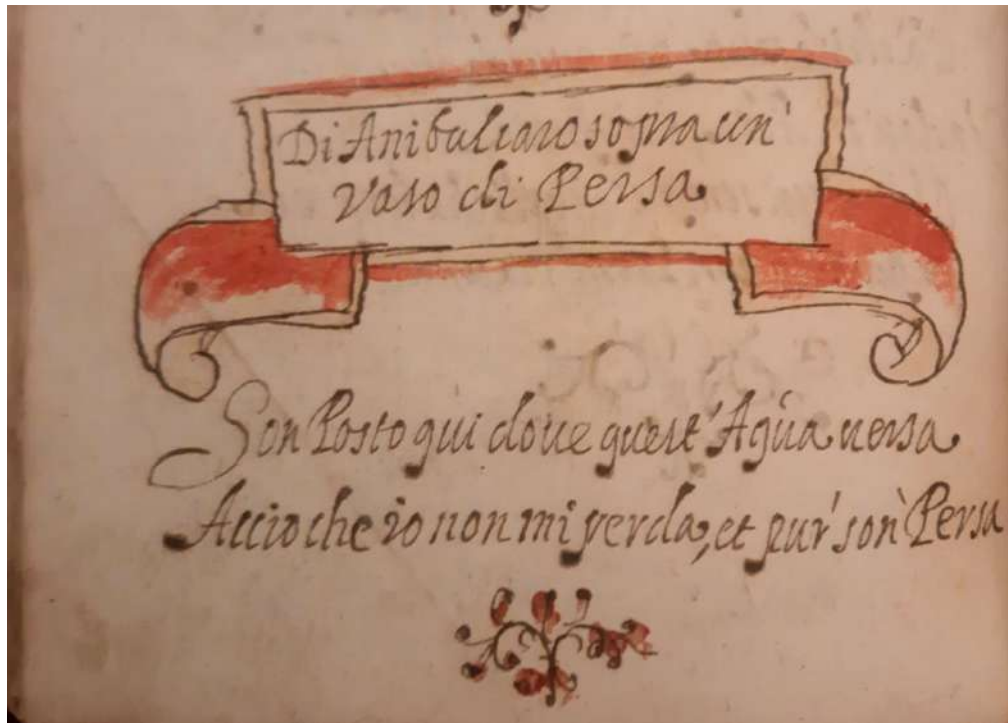 Di Anibalcaro sopra un'
Vaso di Persa
Son Posto qui doue quest'Aqua uersa
Accioche io non mi perda, et pur' son' Persa